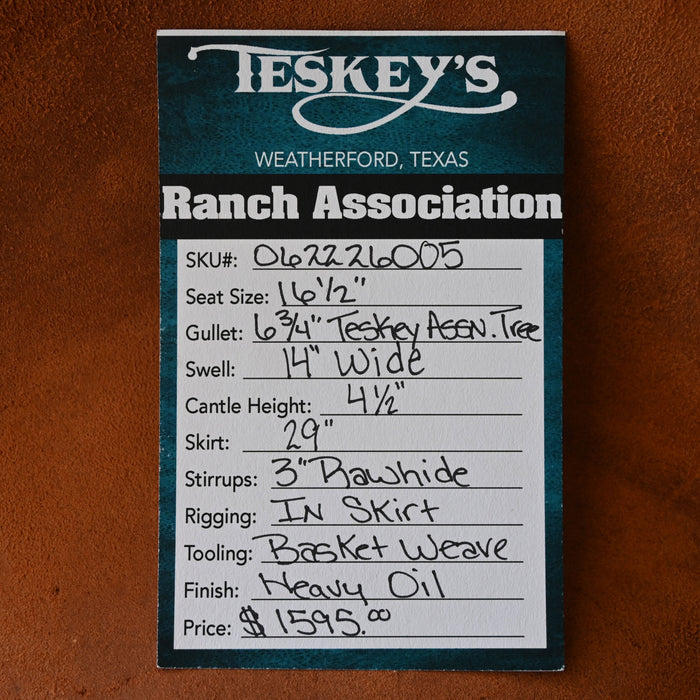 TESKEY'S
WEATHERFORD, TEXAS
Ranch Association
SKU#: 062226005
Seat Size: 16 1/2"
Gullet: 6 3/4" Teskey ASSN. Tree
Swell: 14" Wide
Cantle Height: 4 1/2"
Skirt: 29"
Stirrups: 3" Rawhide
Rigging: IN SKirt
Tooling: BasKet Weave
Finish: Heavy Oil
Price: $1595.00